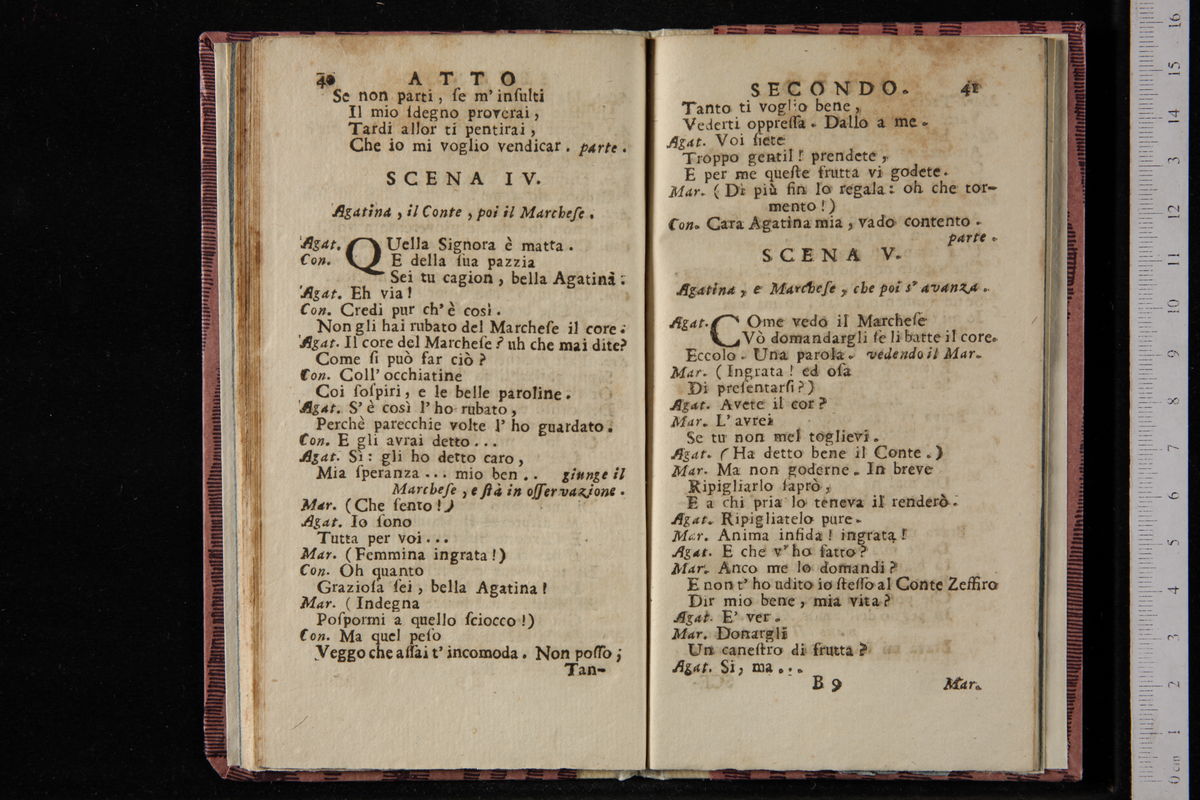 40 ATTO
Se non parti, ſe m' inſulti
Il mio ſdegno proverai,
Tardi allor ti pentirai,
Che io mi voglio vendicar. parte.
SCENA IV.
Agatina, il Conte, poi il Marcheſe.
Agat. QUella Signora è matta.
Con. E della ſua pazzia
Sei tu cagion, bella Agatina:
Agat. Eh via!
Con. Credi pur ch' è così.
Non gli hai rubato del Marcheſe il core.
Agat. Il core del Marcheſe? uh che mai dite?
Come ſi può far ciò?
Con. Coll' occhiatine
Coi ſoſpiri, e le belle paroline.
Agat. S' è così l' ho rubato,
Perchè parecchie volte l' ho guardato.
Con. E gli avrai detto...
Agat. Sì: gli ho detto caro,
Mia ſperanza... mio ben.. giunge il
Marcheſe, e ſtà in oſſervazione.
Mar. (Che ſento!)
Agat. Io ſono
Tutta per voi...
Mar. (Femmina ingrata!)
Con. Oh quanto
Grazioſa ſei, bella Agatina!
Mar. (Indegna
Poſpormi a quello ſciocco!)
Con. Ma quel peſo
Veggo che aſſai t' incomoda. Non poſſo;
Tan-
SECONDO. 41
Tanto ti voglio bene,
Vederti oppreſſa. Dallo a me.
Agat. Voi ſiete
Troppo gentil! prendete,
E per me queſte frutta vi godete.
Mar. (Di più fin lo regala: oh che tor-
mento!)
Con. Cara Agatina mia, vado contento.
parte.
SCENA V.
Agatina, e Marcheſe, che poi s' avanza.
Agat. COme vedo il Marcheſe
Vò domandargli ſe li batte il core.
Eccolo. Una parola. vedendo il Mar.
Mar. (Ingrata! ed oſa
Di preſentarſi?)
Agat. Avete il cor?
Mar. L' avrei
Se tu non mel toglievi.
Agat. (Ha detto bene il Conte.)
Mar. Ma non goderne. In breve
Ripigliarlo ſaprò,
E a chi pria lo teneva il renderò.
Agat. Ripigliatelo pure.
Mar. Anima infida! ingrata!
Agat. E che v' ho fatto?
Mar. Anco me lo domandi?
E non t' ho udito io ſteſſo al Conte Zeffiro
Dir mio bene, mia vita?
Agat. E' ver.
Mar. Donargli
Un caneſtro di frutta?
Agat. Si, ma...
B 9 Mar.
0 cm 1 2 3 4 5 6 7 8 9 10 11 12 13 14 15 16